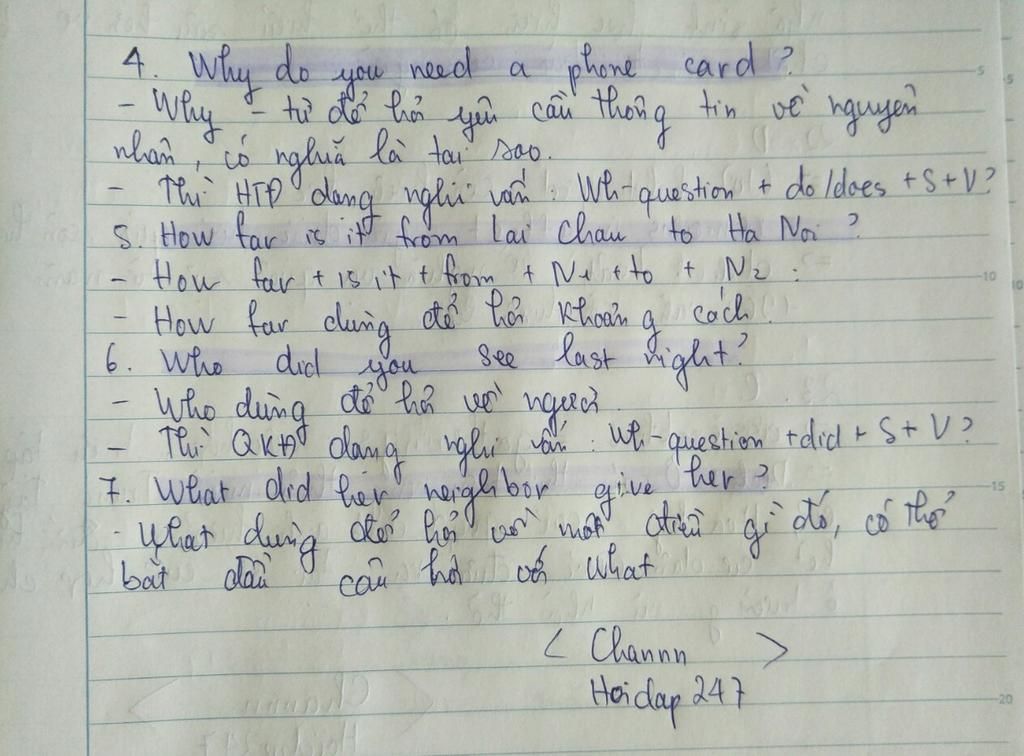 4. Why do you need a phone card?
- Why - từ để hỏi yêu cầu thông tin về nguyên
nhân, có nghĩa là tại sao.
- Thì HTĐ dạng nghi vấn: Wh-question + do/does + S + V?
5. How far is it from Lai Chau to Ha Noi?
- How far + is it + from + N1 + to + N2:
- How far dùng để hỏi khoảng cách.
6. Who did you see last night?
- Who dùng để hỏi về người.
- Thì QKĐ dạng nghi vấn: Wh-question + did + S + V?
7. What did her neighbor give her?
- What dùng để hỏi về một điều gì đó, có thể
bắt đầu câu hỏi với What
< Channn >
Hoidap 247
5
10
15
20